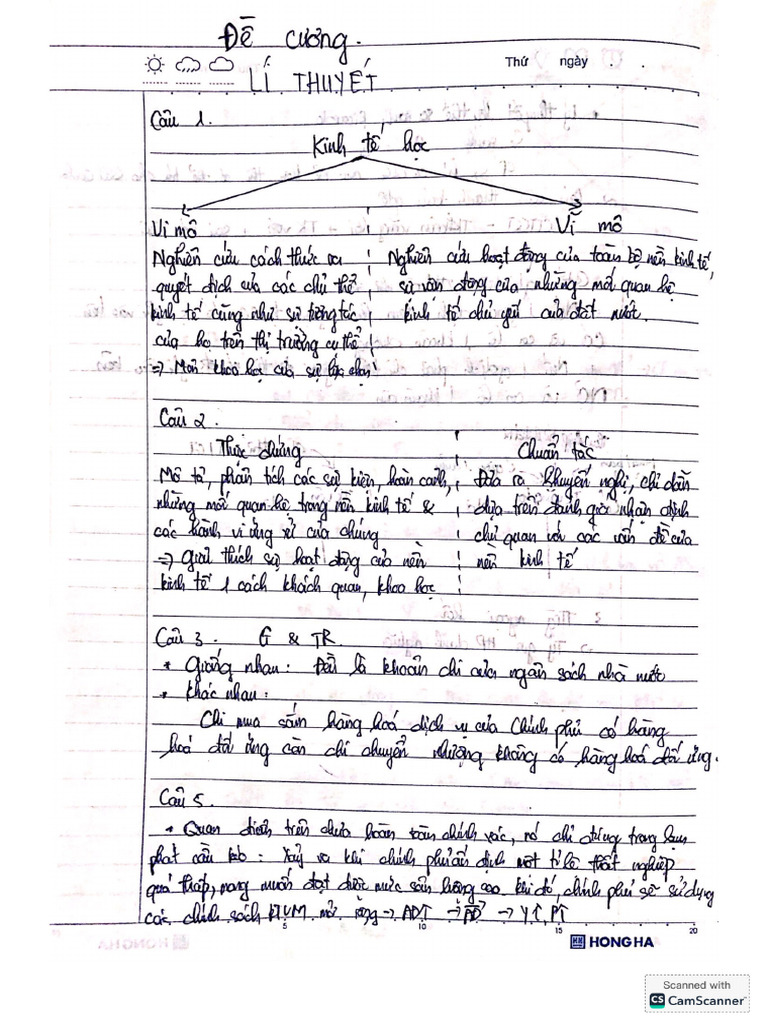 Đề cương.
LÍ THUYẾT
Thứ ngày . .
Câu 1.
Kinh tế học
Vi mô
Nghiên cứu cách thức ra
quyết định của các chủ thể
kinh tế cũng như sự tương tác
của họ trên thị trường cụ thể
=> Môn khoa học của sự lựa chọn
Vĩ mô
Nghiên cứu hoạt động của toàn bộ nền kinh tế,
sự vận động của những mối quan hệ
kinh tế chủ yếu của đất nước.
Câu 2.
Thực chứng
Mô tả, phân tích các sự kiện, hoàn cảnh,
những mối quan hệ trong nền kinh tế &
các hành vi ứng xử của chúng
=> Giải thích sự hoạt động của nền
kinh tế 1 cách khách quan, khoa học
Chuẩn tắc
Đưa ra khuyến nghị, chỉ dẫn
dựa trên đánh giá nhận định
chủ quan với các vấn đề của
nền kinh tế
Câu 3. G & TR.
* Giống nhau: Đều là khoản chi của ngân sách nhà nước
* Khác nhau:
Chi mua sắm hàng hoá dịch vụ của Chính phủ có hàng
hoá đối ứng còn chi chuyển nhượng không có hàng hoá đối ứng.
Câu 5.
* Quan điểm trên chưa hoàn toàn chính xác, nó chỉ đúng trong lạm
phát cầu kéo: Xảy ra khi chính phủ ấn định một tỉ lệ thất nghiệp
quá thấp, mong muốn đạt được mức sản lượng cao khi đó, chính phủ sẽ sử dụng
các chính sách KTVM mở rộng -> AD↑ -> -> Y↑, P↑
5 10 15 20
HONG HA
Scanned with
CS CamScanner